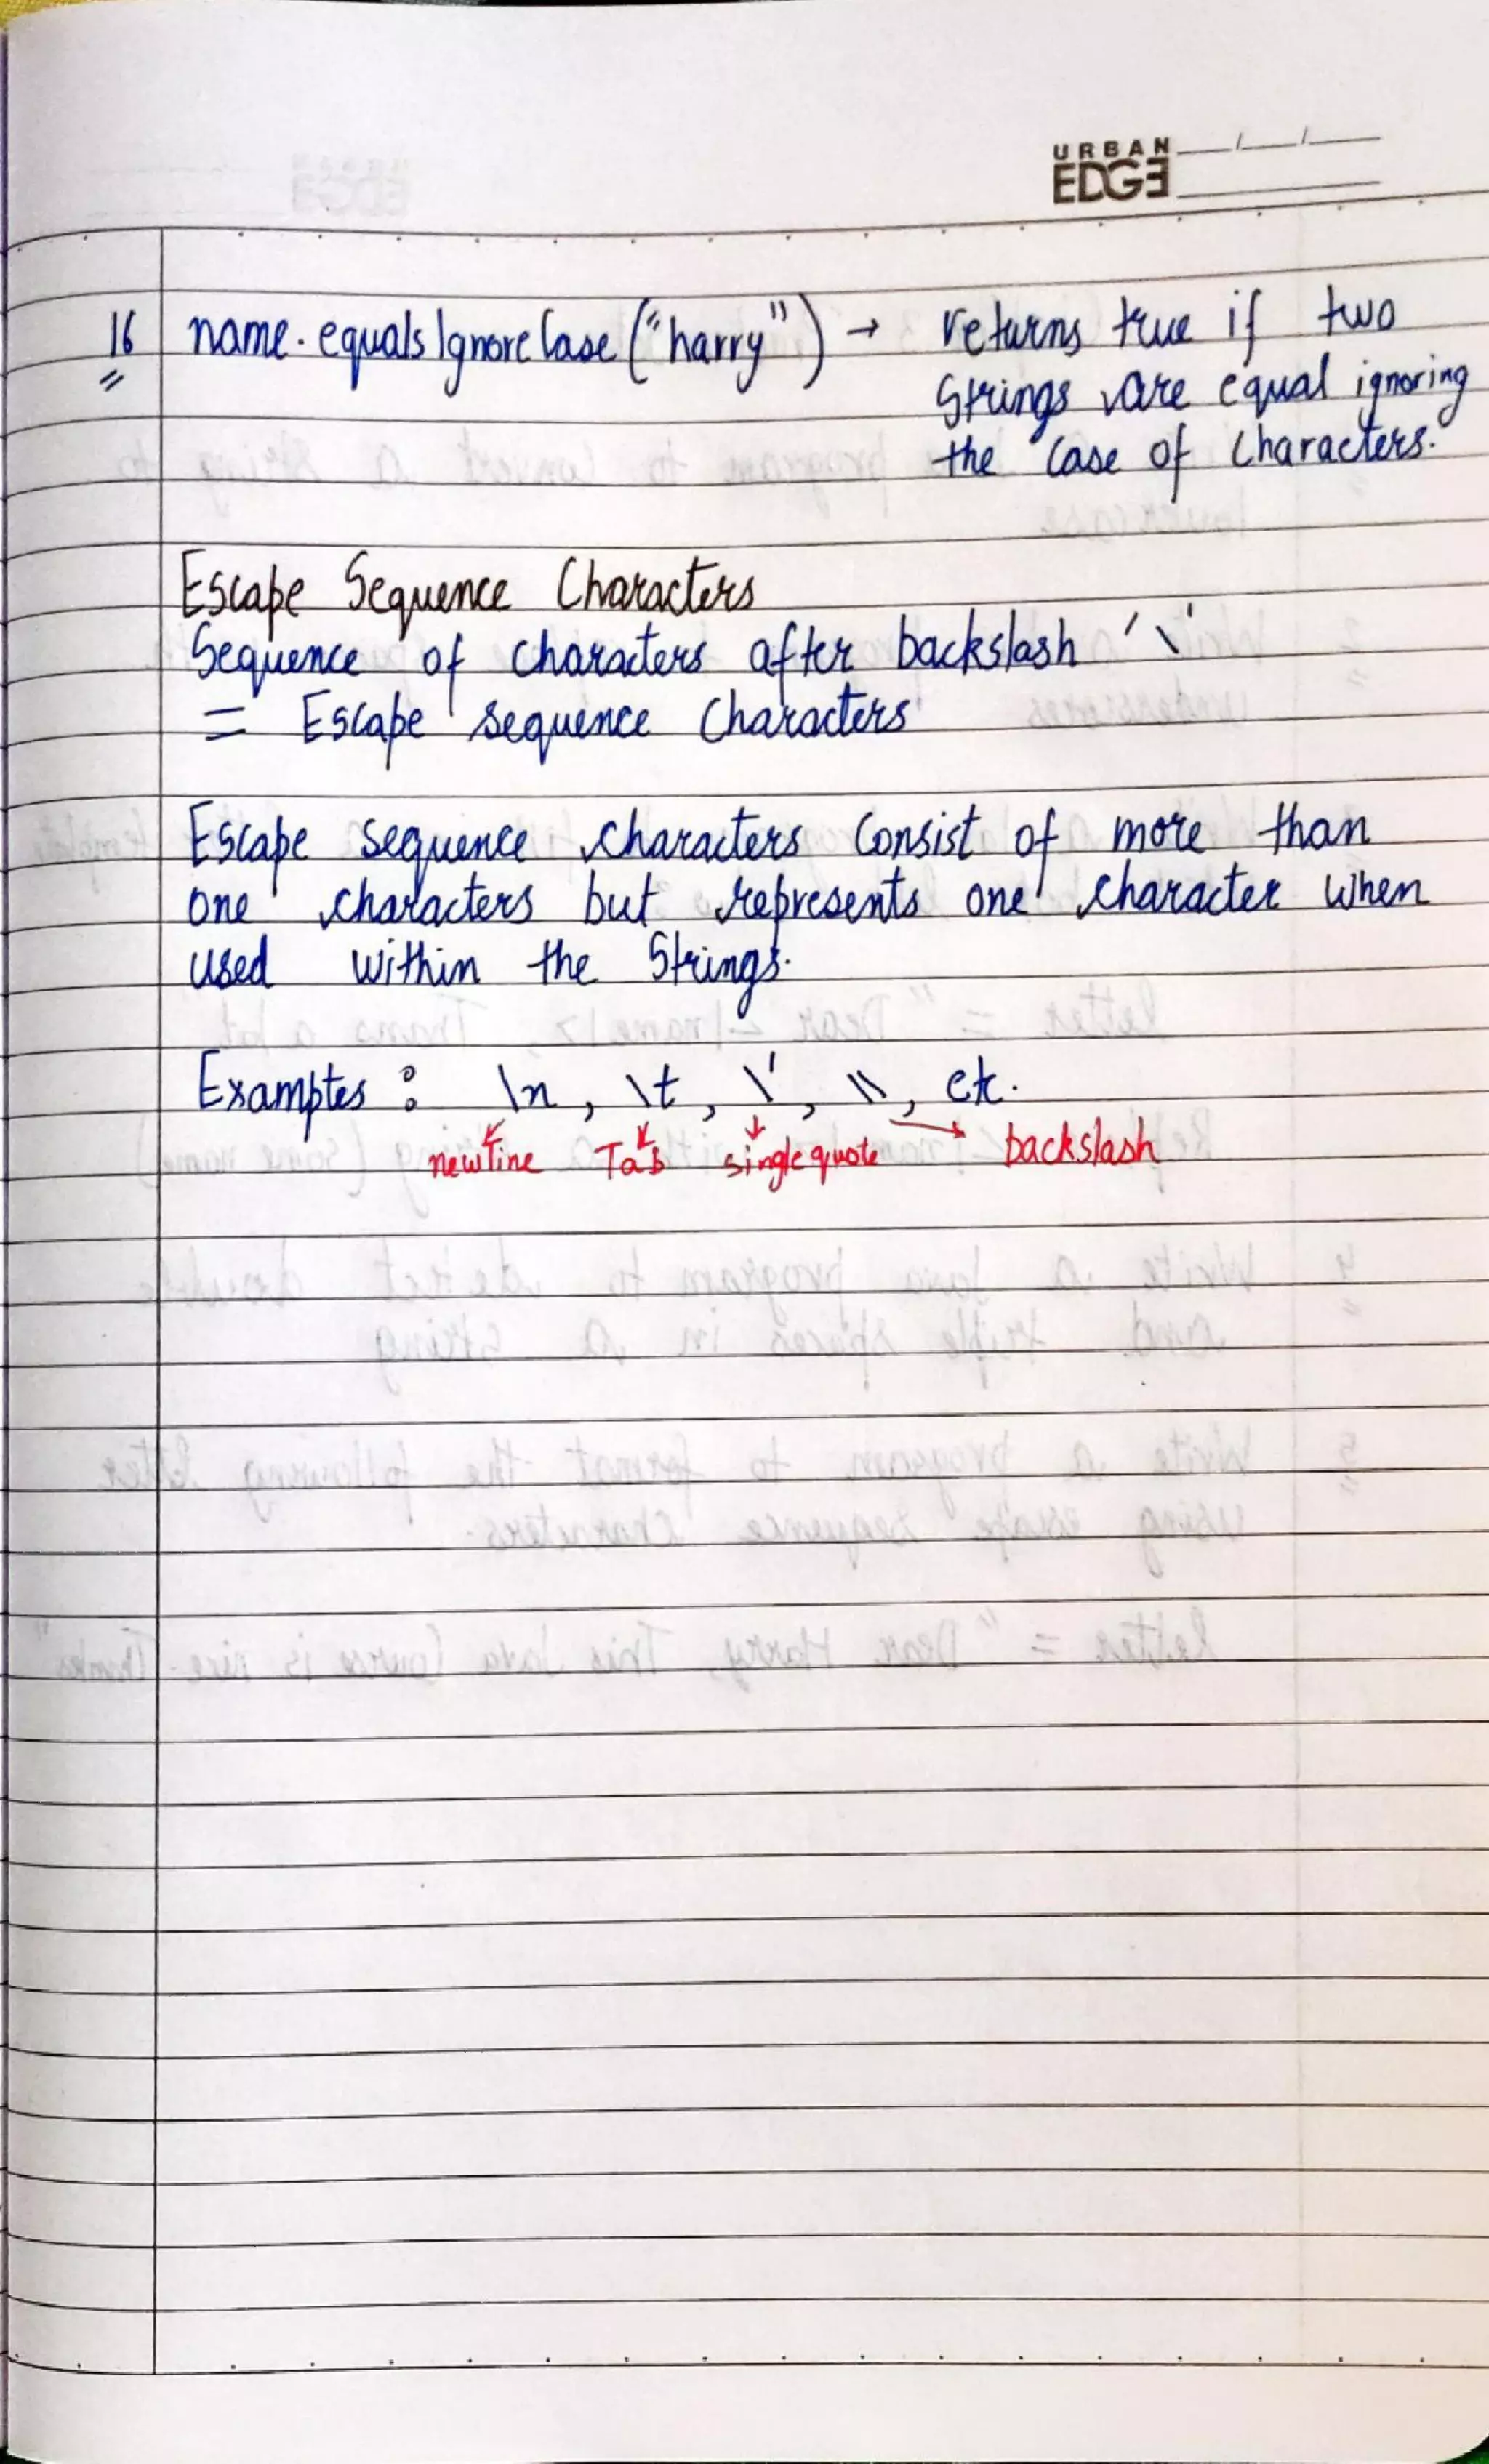 URBAN
EDGE
16 name.equalsIgnoreCase("harry") → returns true if two
Strings are equal ignoring
the case of characters.
Escape Sequence Characters
Sequence of characters after backslash '\'
= Escape sequence Characters
Escape sequence characters Consist of more than
one characters but represents one character when
used within the Strings.
Examples : \n , \t , \' , \\ , etc.
newline Tab single quote backslash